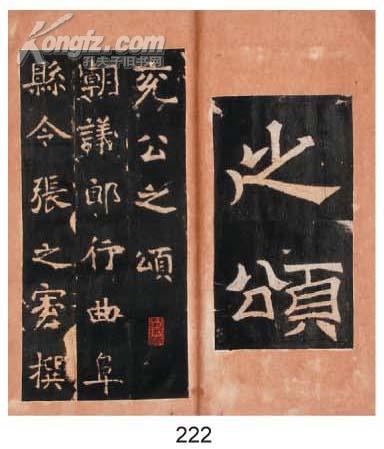 之頌
兖公之頌
朝議郎行曲阜
縣令張之宏撰
Kongfz.com
孔夫子旧书网
222